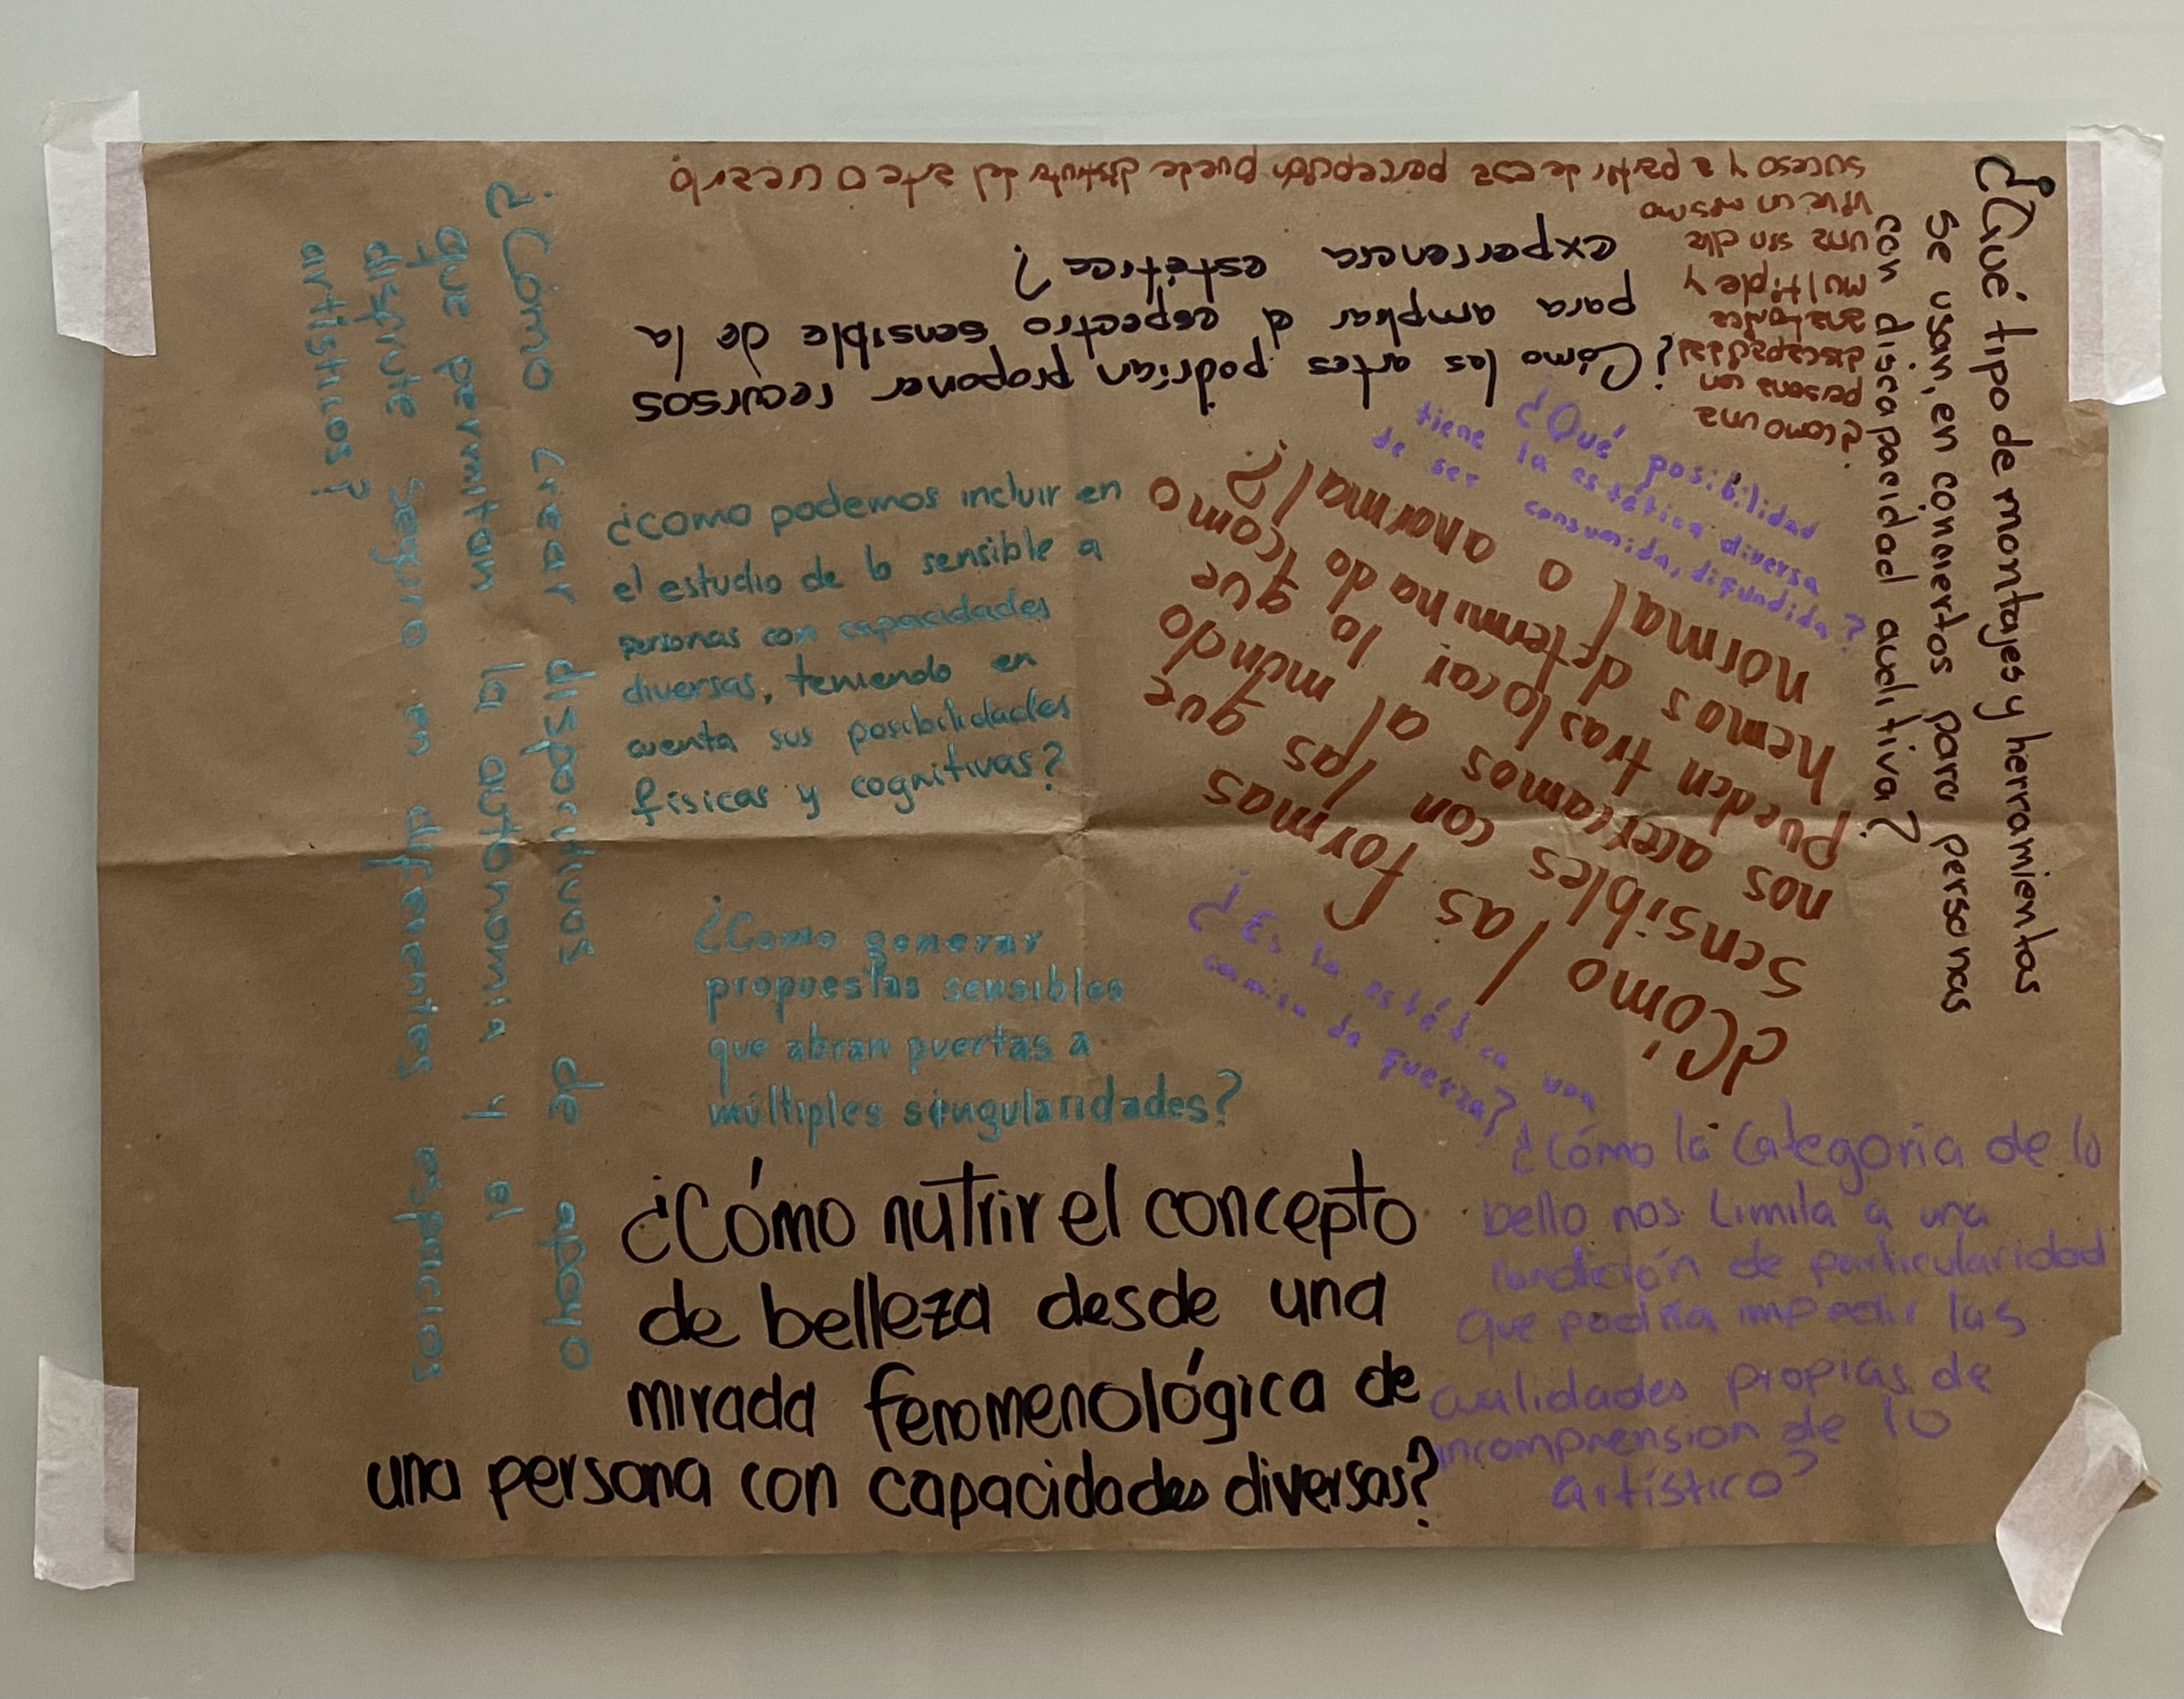 ¿Cómo crear dispositivos de apoyo
que permitan la autonomía y el
disfrute seguro en diferentes espacios
artísticos?
¿como podemos incluir en
el estudio de lo sensible a
personas con capacidades
diversas, teniendo en
cuenta sus posibilidades
físicas y cognitivas?
¿Como generar
propuestas sensibles
que abran puertas a
múltiples singularidades?
¿Cómo nutrir el concepto
de belleza desde una
mirada fenomenológica de
una persona con capacidades diversas?
¿Cómo la categoria de lo
bello nos limita a una
condición de particularidad
que podria impedir las
cualidades propias de
incomprension de lo
artístico?
¿Es la estética una
camisa de fuerza?
¿Cómo las formas
sensibles con las que
nos acercamos al mundo
pueden traslocar lo que
hemos determinado como
normal o anormal?
¿Qué posibilidad
tiene la estética diversa
de ser consumida, difundida?
¿Qué tipo de montajes y herramientas
se usan, en conciertos para personas
con discapacidad auditiva?
¿Cómo las artes podrían proponer recursos
para ampliar el espectro sensible de la
experiencia estética?
¿como una
persona con
discapacidad
multiple y
una sin ella
vive un mismo
suceso y a partir de esa percepción puede disfrutar del arte o crearlo